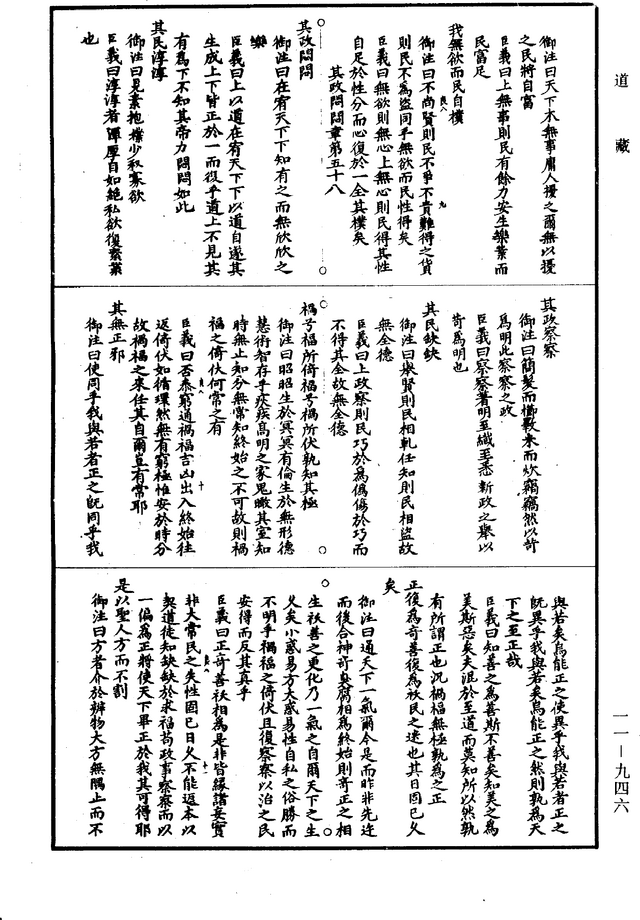 道藏
御注曰天下本無事庸人擾之爾無以擾
之民將自富
臣義曰上無事則民有餘力安生樂業而
民富足
我無欲而民自樸
御注曰不尚賢則民不爭不貴難得之貨
則民不為盜同乎無欲而民性得矣
臣義曰無欲則無心上無心則民得其性
自足於性分而心復於一全其樸矣
其政悶悶章第五十八
其政悶悶
御注曰在宥天下下知有之而無欣欣之
樂
臣義曰上以道在宥天下下以道自遂其
生成上下皆正於一而復乎道上不見其
有為下不知其帝力悶悶如此
其民淳淳
御注曰見素抱樸少私寡欲
臣義曰淳淳者渾厚自如絕私欲復素樸
也
其政察察
御注曰簡髮而櫛數米而炊竊竊然以苛
為明此察察之政
臣義曰察察著明至纖至悉新政之舉以
苛為明也
其民缺缺
御注曰舉賢則民相軋任知則民相盜故
無全德
臣義曰上政察則民巧於為偽傷於巧而
不得其全故無全德
禍兮福所倚福兮禍所伏孰知其極
御注曰昭昭生於冥冥有倫生於無形德
慧術智存乎疢疾高明之家鬼瞰其室知
時無止知分無常知終始之不可故則禍
福之倚伏何常之有
臣義曰否泰窮通禍福吉凶出入終始往
返倚伏如循環然無有窮極惟安於時分
故禍福之來任其自爾豈有常耶
其無正邪
御注曰使同乎我與若者正之既同乎我
與若矣烏能正之使異乎我與若者正之
既異乎我與若矣烏能正之然則孰為天
下之至正哉
臣義曰知善之為善斯不善矣知美之為
美斯惡矣夫混於至道而莫知所以然孰
有所謂正也沉禍福無極孰為之正
正復為奇善復為祅民之迷也其日固已久
矣
御注曰通天下一氣爾今是而昨非先迕
而後合神奇臭腐相為終始則奇正之相
生祅善之更化乃一氣之自爾天下之生
久矣小惑易方大惑易性自私之俗勝而
不明乎禍福之倚伏且復察察以治之民
安得而反其真乎
臣義曰正奇善祅相為是非皆緣諸妄實
非大常民之失性固已日久不能返本以
契道徒知缺缺於求福苟政事察察而以
一偏為正將使天下畢正於我其可得耶
是以聖人方而不割
御注曰方者介於辨物大方無隅止而不
一一-九四六